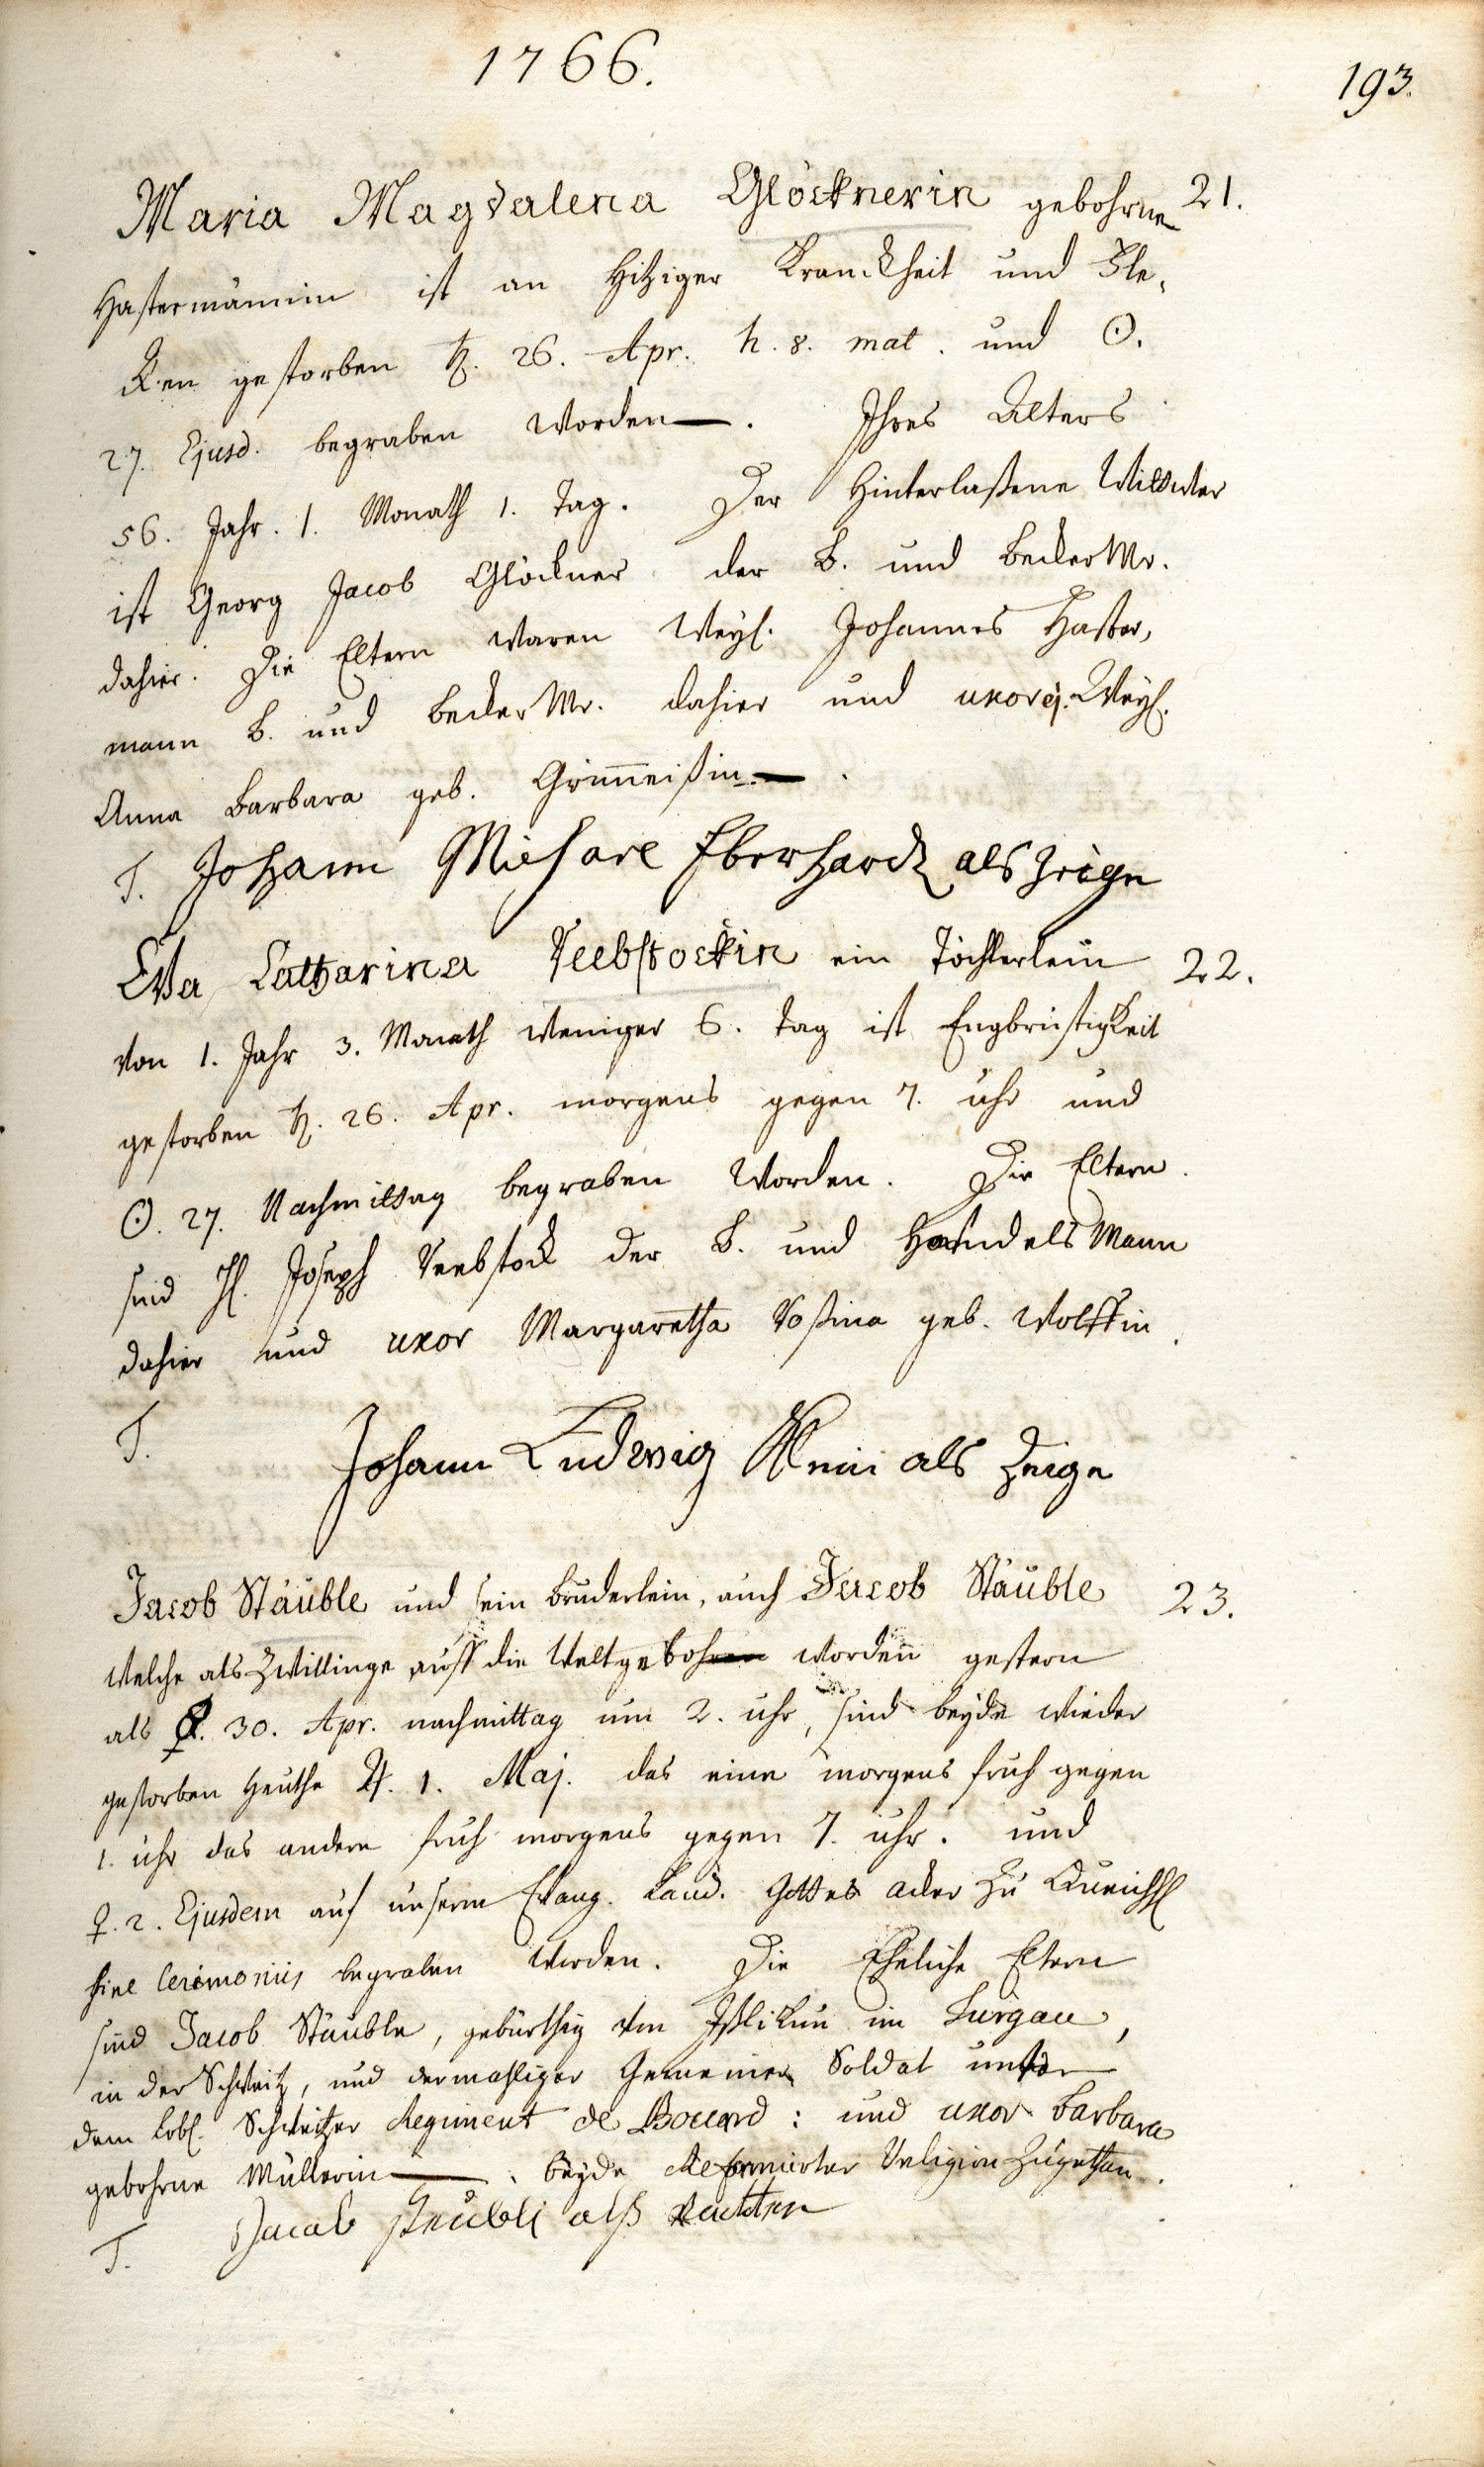 1766.
193.
Maria Magdalena Glöcknerin gebohrne 21.
Hastermännin ist an hitziger Kranckheit und Fle,
cken gestorben ♄. 26. Apr. h. 8. mat. und ☉.
27. Ejusd. begraben worden —. Ihres Alters
56. Jahr. 1. Monath 1. Tag. Der hinterlaßene Wittwer
ist Georg Jacob Glöckner der B. und Becker Mr.
dahier. Die Eltern waren Weyl. Johannes Haster,
mann B. und Becker Mr. dahier und uxor ej. Weyl.
Anna Barbara geb. —.
T. Johann Michael Eberhardt als zeige
Eva Catharina Reebstockin ein Töchterlein 22.
von 1. Jahr 3. Monath weniger 6. Tag ist Engbrüstigkeit
gestorben ♄. 26. Apr. morgens gegen 7. uhr und
☉. 27. Nachmittag begraben worden. Die Eltern
sind H. Joseph Reebstock der B. und Handels Mann
dahier und uxor Margaretha Rosina geb. Wolffin.
T. Johann Ludwig als Zeige
Jacob Stäuble und sein brüderlein, auch Jacob Stäuble 23.
welche als Zwillinge auff die Welt gebohren worden gestern
als ☿. 30. Apr. nachmittag um 2. uhr, sind beyde wieder
gestorben heuthe ♃. 1. Maj. das eine morgens früh gegen
1. uhr das andere früh morgens gegen 7. uhr. und
♀. 2. Ejusdem auf unserm Evang. Land. Gottes acker zu Queichh
sine Cerimoniis begraben worden. Die Eheliche Eltern
sind Jacob Stäuble, gebürthig von Ißlikun im Turgau,
in der Schweitz, und dermahliger Gemeiner Soldat unter
dem lobl. Schweitzer Regiment de Boccard: und uxor Barbara
gebohrne Müllerin —. beyde Reformirter Religion zugethan.
T. Jacob Steübli alß Vatter